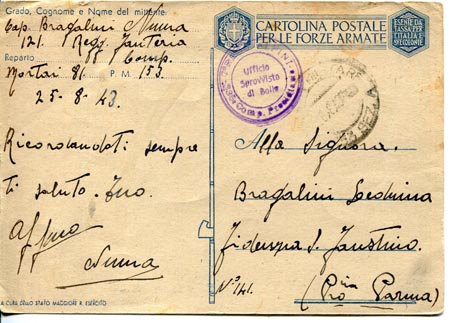 Grado, Cognome e Nome del mittente.
Cap. Bragalini Numa
121. Regg. Fanteria
Reparto Comp.
Mortai 81. P. M. 153.
25-8-43
Ricordandoti sempre
ti saluto. Tuo
Aff/mo
Numa
A CURA DELLO STATO MAGGIORE R. ESERCITO
CARTOLINA POSTALE
PER LE FORZE ARMATE
ESENTE DA
TASSA PER
L'ITALIA E
SPEDIZIONE
Ufficio
Sprovvisto
di Bollo
Alla Signora.
Bragalini
Fidenza S. Faustino.
N° 141.
(Pro Parma)